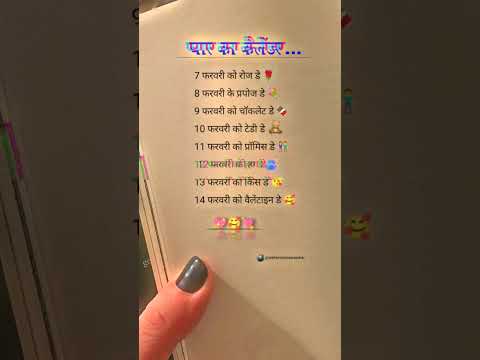 का कैलेंडर...
7 फरवरी को रोज डे 🌹
8 फरवरी के प्रपोज डे
9 फरवरी को चॉकलेट डे 🍫
10 फरवरी को टेडी डे 🧸
11 फरवरी को प्रॉमिस डे 👫
12 फरवरी को डे
13 फरवरी को किस डे 😘
14 फरवरी को वैलेंटाइन डे 🥰